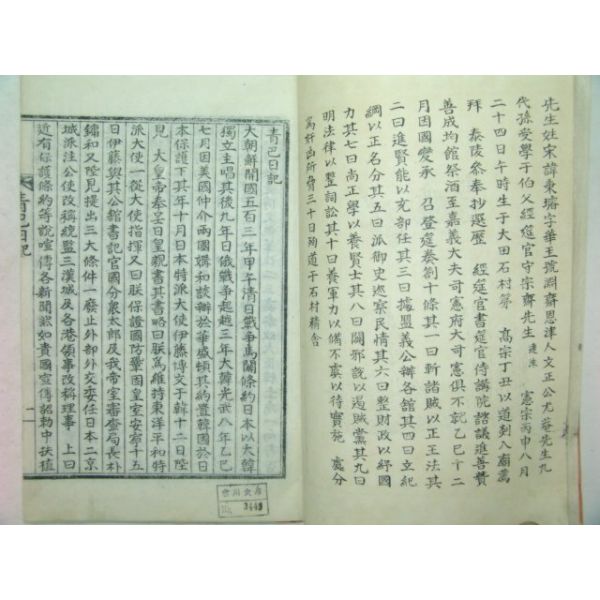 先生姓宋諱秉璿字華玉號淵齋恩津人文正公尤菴先生九
代孫受學于伯父經筵官守宗齋先生 達洙 憲宗丙申八月
二十四日午時生于大田石村第 高宗丁丑以道剡入廟薦
拜 泰陵參奉抄選歷 經筵官書筵官侍講院諮議進善贊
善成均館祭酒至嘉義大夫司憲府大司憲俱不就乙巳十二
月因國變承 召登筵奏劄十條其一曰斬諸賊以正王法其
二曰進賢能以充部任其三曰據盟義公辦各館其四曰立紀
綱以正名分其五曰派御史巡察民情其六曰整財政以紓國
力其七曰尚正學以養賢士其八曰闢邪說以遏賊黨其九曰
明法律以整詞訟其十曰養軍力以備不虞以待實施 處分
爲奸凶所脅三十日殉道于石村精舍
青巴日記
大朝鮮開國五百三年甲午清日戰爭馬關條約日本以大韓
獨立主唱其後九年日俄戰爭起越三年大韓光武八年乙巳
七月因美國仲介兩國媾和談辦於華盛頓其約置韓國於日
本保護下其年十月日本特派大使伊藤博文于韓十二日陛
見 大皇帝奏宴日皇親書其書略曰朕爲維持東洋平和特
派大使一從大使指揮又曰朕保證國防鞏固皇室安寧十五
日伊藤與其公館書記官國分象太郎及我帝室審査局長朴
鏞和又陛見提出三大條件一廢止外部外交委任日本二京
城派注公使改稱統監三漢城及各港領事改稱理事 上曰
近有保護條約等說喧傳各新聞然如貴國宣傳詔勅中扶植
青巴日記
一
3449